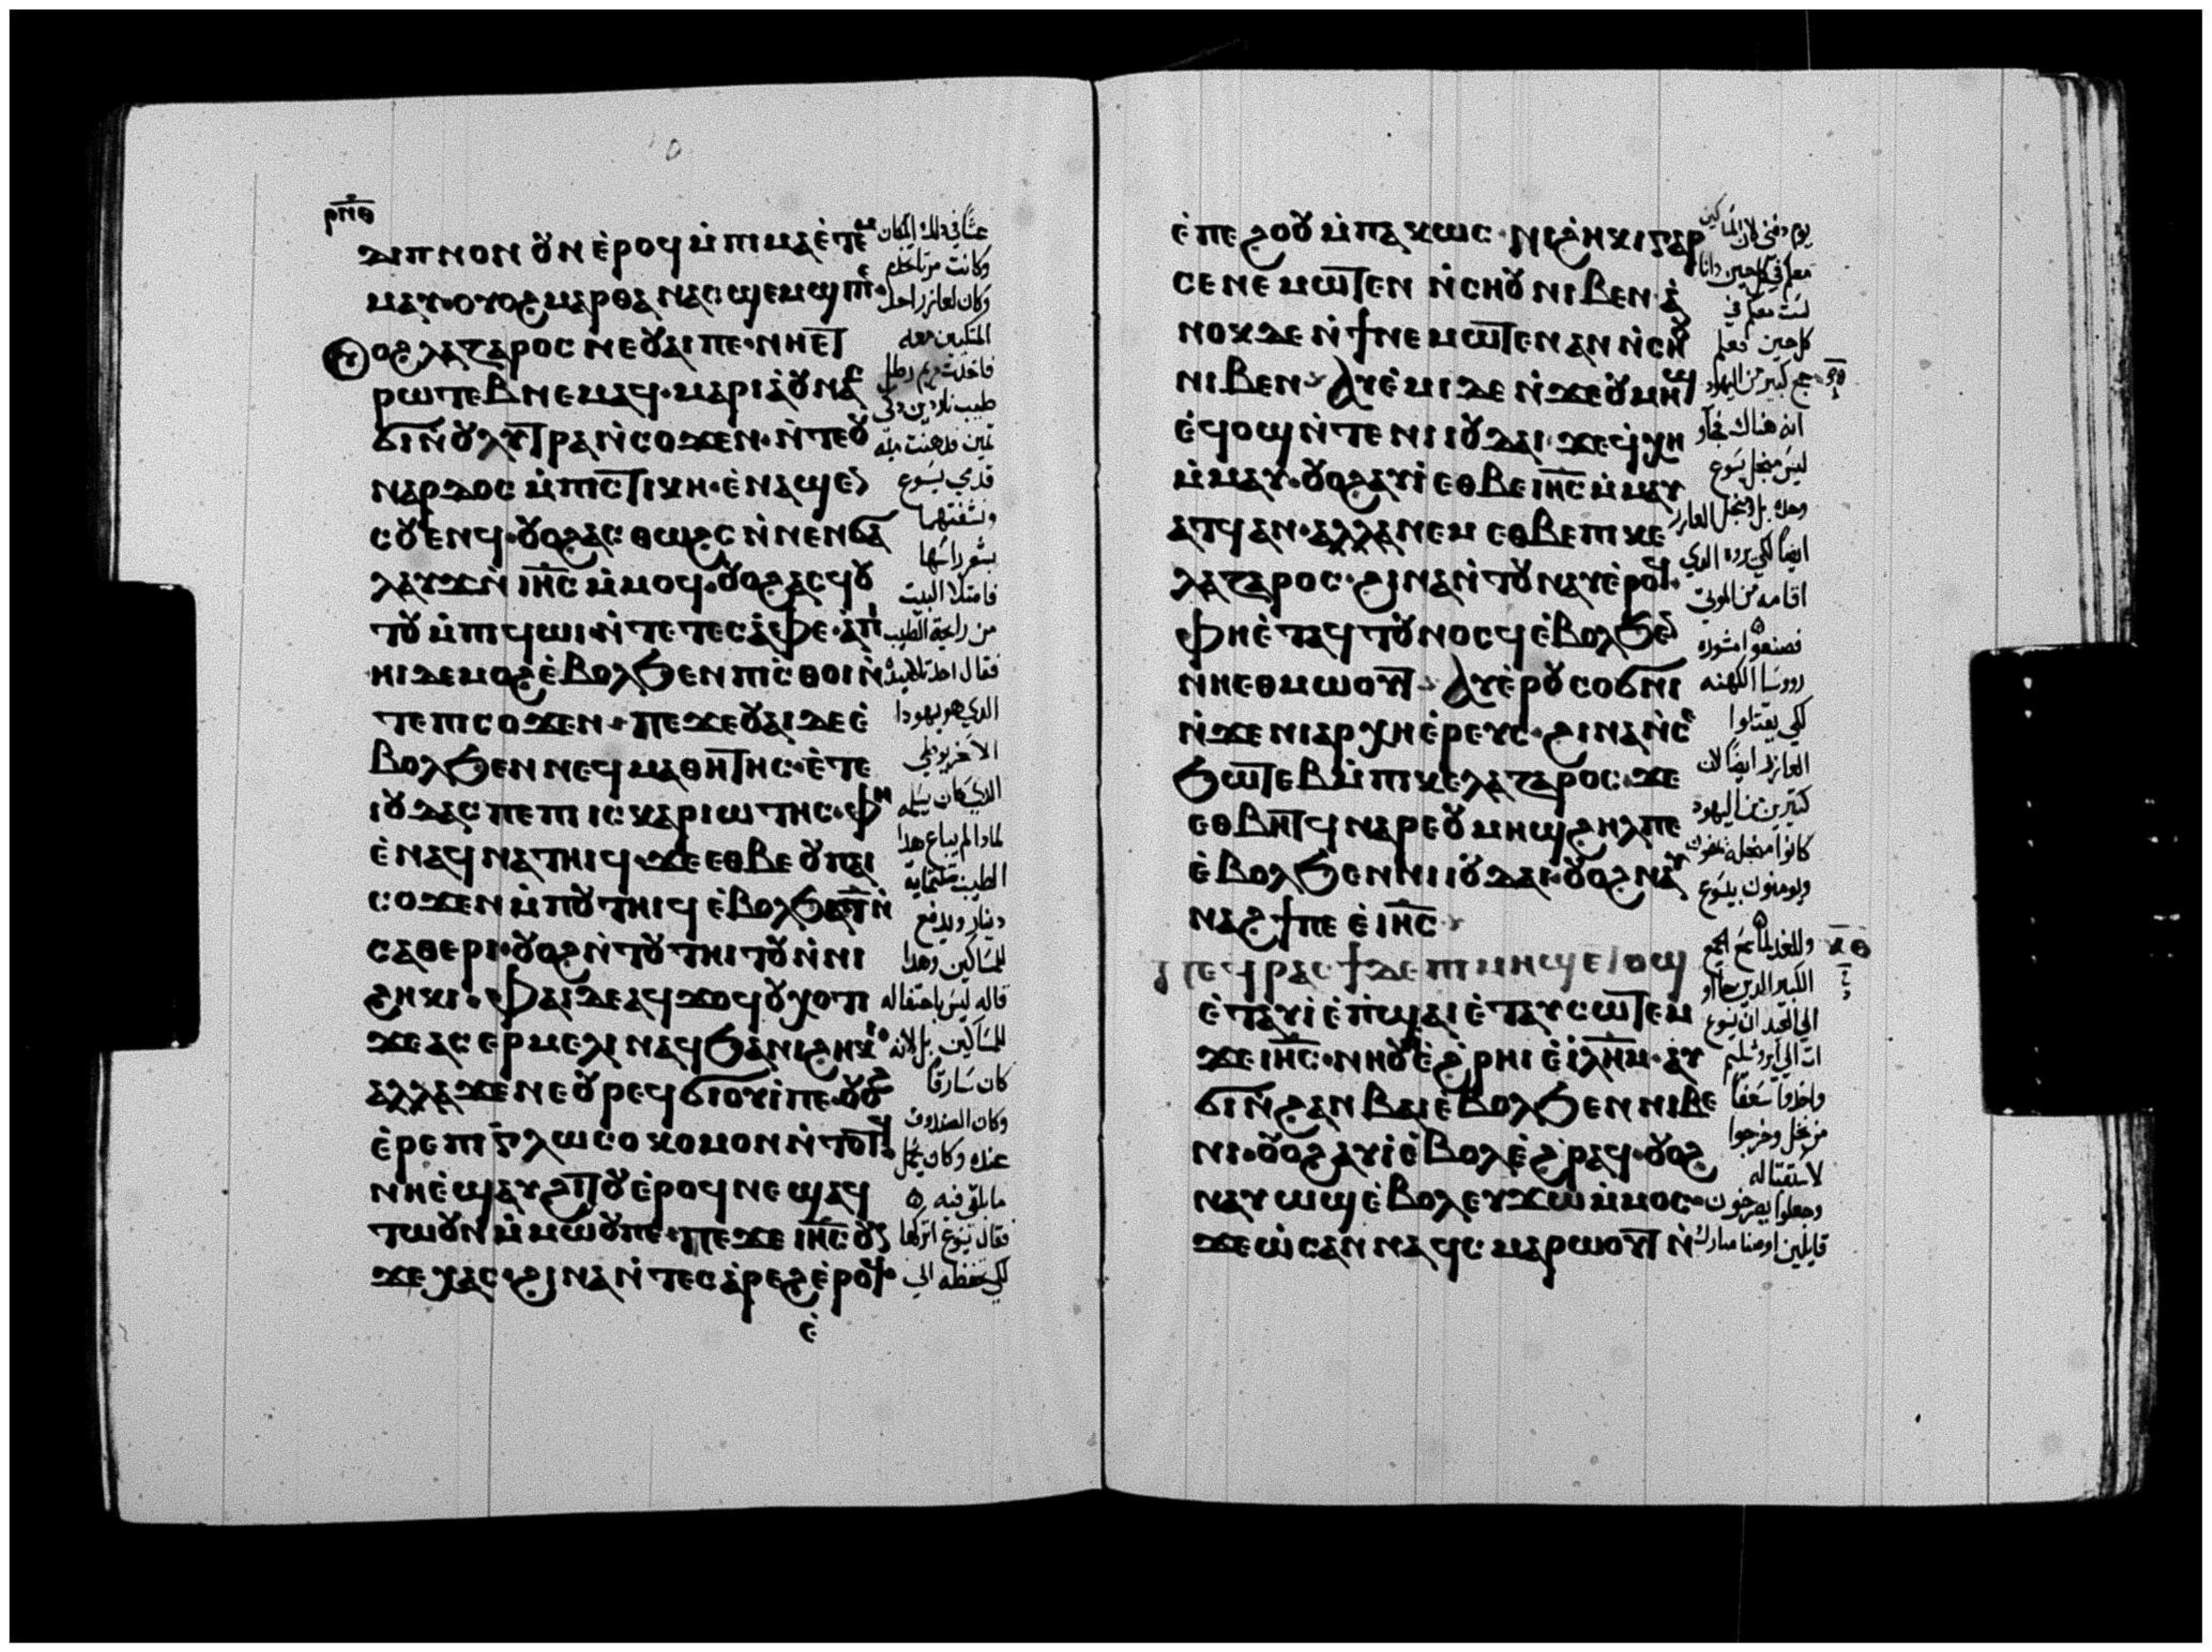 ⲣⲛ̅ⲑ
ⲇⲓⲡⲛⲟⲛ ⲟⲩⲛ ⲉ̀ⲣⲟϥ ⲙ̀ⲡⲓⲙⲁ ⲉ̀ⲧⲉⲙ
ⲙⲁⲩ· ⲟⲩⲟϩ ⲙⲁⲣⲑⲁ ⲛⲁⲥϣⲉⲙϣⲓ ⲡⲉ·
ⲟⲩⲟϩ ⲗⲁⲍⲁⲣⲟⲥ ⲛⲉ ⲟⲩⲁⲓ ⲡⲉ· ⲛⲛⲏⲉⲧ
ⲣⲱⲧⲉⲃ ⲛⲉⲙⲁϥ· ⲙⲁⲣⲓⲁ ⲟⲩⲛ ⲁⲥ
ϭⲓ ⲛ̀ⲟⲩⲗⲩⲧⲣⲁ ⲛ̀ⲥⲟϫⲉⲛ· ⲛ̀ⲧⲉ ⲟⲩ
ⲛⲁⲣⲇⲟⲥ ⲙ̀ⲡⲓⲥⲧⲓⲕⲏ· ⲉ̀ⲛⲁϣⲉⲛ
ⲥⲟⲩⲉⲛϥ· ⲟⲩⲟϩ ⲁⲥⲑⲱϩⲥ ⲛ̀ⲛⲉⲛϭⲁ
ⲗⲁⲩϫ ⲛ̀ⲓⲏ̅ⲥ̅ ⲙ̀ⲙⲟϥ· ⲟⲩⲟϩ ⲁⲥϥⲟ
ⲧⲟⲩ ⲙ̀ⲡⲓϥⲱⲓ ⲛ̀ⲧⲉ ⲧⲉⲥⲁ̀ⲫⲉ· ⲁ̀ⲡⲓ
ⲏⲓ ⲇⲉ ⲙⲟϩ ⲉ̀ⲃⲟⲗϧⲉⲛ ⲡⲓⲥ̀ⲑⲟⲓ ⲛ̀
ⲧⲉ ⲡⲓⲥⲟϫⲉⲛ· ⲡⲉϫⲉ ⲟⲩⲁⲓ ⲇⲉ ⲉ̀
ⲃⲟⲗϧⲉⲛ ⲛⲉϥⲙⲁⲑⲏⲧⲏⲥ· ⲉ̀ⲧⲉ
ⲓⲟⲩⲇⲁⲥ ⲡⲉ ⲡⲓⲓⲥⲕⲁⲣⲓⲱⲧⲏⲥ· ⲫⲏ
ⲉ̀ⲛⲁϥⲛⲁⲧⲏⲓϥ· ϫⲉ ⲉⲑⲃⲉ ⲟⲩ ⲡⲁⲓ
ⲥⲟϫⲉⲛ ⲙ̀ⲡⲟⲩⲧⲏⲓϥ ⲉ̀ⲃⲟⲗϧⲁ ⲧ̅ ⲛ̀
ⲥⲁⲑⲉⲣⲓ· ⲟⲩⲟϩ ⲛ̀ⲧⲟⲩⲧⲏⲓⲧⲟⲩ ⲛ̀ⲛⲓ
ϩⲏⲕⲓ· ⲫⲁⲓ ⲇⲉ ⲁϥϫⲟϥ ⲟⲩⲭ ⲟⲧⲓ
ϫⲉ ⲁⲥⲉⲣⲙⲉⲗⲓ ⲛⲁϥ ϧⲁ ⲛⲓϩⲏⲕⲓ·
ⲁⲗⲗⲁ ϫⲉ ⲛⲉ ⲟⲩⲣⲉϥϭⲓⲟⲩⲓ̀ ⲡⲉ· ⲟⲩⲟϩ
ⲉ̀ⲣⲉ ⲡⲓⲅⲗⲱⲥⲟⲕⲟⲙⲟⲛ ⲛ̀ⲧⲟⲧϥ·
ⲛⲏ ⲉ̀ϣⲁⲩϩⲓⲧⲟⲩ ⲉ̀ⲣⲟϥ ⲛⲉϣⲁϥ
ⲧⲱⲟⲩⲛ ⲙ̀ⲙⲱⲟⲩ ⲡⲉ· ⲡⲉϫⲉ ⲓⲏ̅ⲥ̅ ⲟⲩⲛ
ϫⲉ ⲭⲁⲥ· ϩⲓⲛⲁ ⲛ̀ⲧⲉⲥⲁ̀ⲣⲉϩ ⲉ̀ⲣⲟϥ·
ⲉ̀
عشاً في ذلك المكان
وكانت مرتا تخدم
وكان لعازر احد
المتكيين معه
فاخذت مريم رطل
طيب ناردين ذكي
ثمين فدهنت به
قدمي يسوع
ونشفتهما
بشعر راسها
فامتلا البيت
من رايحة الطيب
فقال احد تلاميذه
الذي هو يهودا
الاسخريوطي
الذي كان يسلمه
لماذا لم يباع هذا
الطيب بثلثماية
دينار ويدفع
للمساكين وهذا
قاله ليس باهتماله
للمساكين بل لانه
كان سارقاً
وكان الصندوق
عنده وكان يحمل
ما يلقى فيه
فقال يسوع اتركها
لكي تحفظه الي
ⲉ̀ⲡⲉϩⲟⲟⲩ ⲙ̀ⲡⲁⲕⲱⲥ· ⲛⲓϩⲏⲕⲓ ⲅⲁⲣ
ⲥⲉⲛⲉⲙⲱⲧⲉⲛ ⲛ̀ⲥⲏⲟⲩ ⲛⲓⲃⲉⲛ· ⲁ̀
ⲛⲟⲕ ⲇⲉ ⲛ̀ϯⲛⲉⲙⲱⲧⲉⲛ ⲁⲛ ⲛ̀ⲥⲏⲟⲩ
ⲛⲓⲃⲉⲛ· ⲁⲩⲉ̀ⲙⲓ ⲇⲉ ⲛ̀ϫⲉ ⲟⲩⲙⲏϣ
ⲉ̀ϥⲟϣ ⲛ̀ⲧⲉ ⲛⲓⲓⲟⲩⲇⲁⲓ· ϫⲉ ϥ̀ⲭⲏ
ⲙ̀ⲙⲁⲩ· ⲟⲩⲟϩ ⲁⲩⲓ̀ ⲉⲑⲃⲉ ⲓⲏ̅ⲥ̅ ⲙ̀ⲙⲁⲩ
ⲁⲧϥ ⲁⲛ· ⲁⲗⲗⲁ ⲛⲉⲙ ⲉⲑⲃⲉ ⲡⲓⲕⲉ
ⲗⲁⲍⲁⲣⲟⲥ· ϩⲓⲛⲁ ⲛ̀ⲧⲟⲩⲛⲁⲩ ⲉ̀ⲣⲟϥ·
ⲫⲏ ⲉ̀ⲧⲁϥⲧⲟⲩⲛⲟⲥϥ ⲉ̀ⲃⲟⲗϧⲉⲛ
ⲛ̀ⲏⲉⲑⲙⲱⲟⲩⲧ· ⲁⲩⲉ̀ⲣ ⲟⲩⲥⲟϭⲛⲓ
ⲛ̀ϫⲉ ⲛⲓⲁⲣⲭⲏⲉ̀ⲣⲉⲩⲥ· ϩⲓⲛⲁ ⲛ̀ⲥⲉ
ϧⲱⲧⲉⲃ ⲙ̀ⲡⲓⲕⲉⲗⲁⲍⲁⲣⲟⲥ· ϫⲉ
ⲉⲑⲃⲏⲧϥ ⲛⲁⲣⲉ ⲟⲩⲙⲏϣ ϩⲏⲗ ⲡⲉ
ⲉ̀ⲃⲟⲗϧⲉⲛ ⲛⲓⲓⲟⲩⲇⲁⲓ· ⲟⲩⲟϩ ⲛⲁⲩ
ⲛⲁϩϯ ⲡⲉ ⲉ̀ⲓⲏ̅ⲥ̅·
ⲡⲉϥⲣⲁⲥϯ ⲇⲉ ⲡⲓⲙⲏϣ ⲉⲧⲟϣ
ⲉ̀ⲧⲁⲩⲓ̀ ⲉ̀ⲡ̀ϣⲁⲓ ⲉ̀ⲧⲁⲩⲥⲱⲧⲉⲙ
ϫⲉ ⲓⲏ̅ⲥ̅· ⲛⲏⲟⲩ ⲉ̀ϩ̀ⲣⲏⲓ ⲉ̀ⲓⲗⲏ̅ⲙ̅· ⲁⲩ
ϭⲓ ⲛ̀ϩⲁⲛⲃⲁⲓ ⲉ̀ⲃⲟⲗϧⲉⲛ ⲛⲓⲃⲉ
ⲛⲓ· ⲟⲩⲟϩ ⲁⲩⲓ̀ ⲉ̀ⲃⲟⲗ ⲉ̀ϩ̀ⲣⲁϥ· ⲟⲩⲟϩ
ⲛⲁⲩⲱϣ ⲉ̀ⲃⲟⲗ ⲉⲩϫⲱ ⲙ̀ⲙⲟⲥ·
ϫⲉ ⲱ̀ⲥⲁⲛⲛⲁ ϥⲥⲙⲁⲣⲱⲟⲩⲧ ⲛ̀
يوم دفني لان المساكين
معكم في كل حين وانا
لست معكم في
كل حين فعلم
جمع كبير من اليهود
انه هناك فجاؤ
ليس من اجل يسوع
وحده بل ومن اجل العازر
ايضاً لكي يروه الذي
اقامه من الموتى
فصنعوا مشوره
رووسا الكهنه
لكي يقتلوا
العازر ايضاً لان
كثيرين من اليهود
كانوا من اجله يمضون
ويومنون بيسوع
وللغد لما سمع الجمع
الكبير الذين جاؤ
الي العيد ان يسوع
ات الي يروشليم
واخذوا سعفاً
من نخل وخرجوا
لاستقباله
وجعلوا يصرخون
قايلين اوصنا مبارك